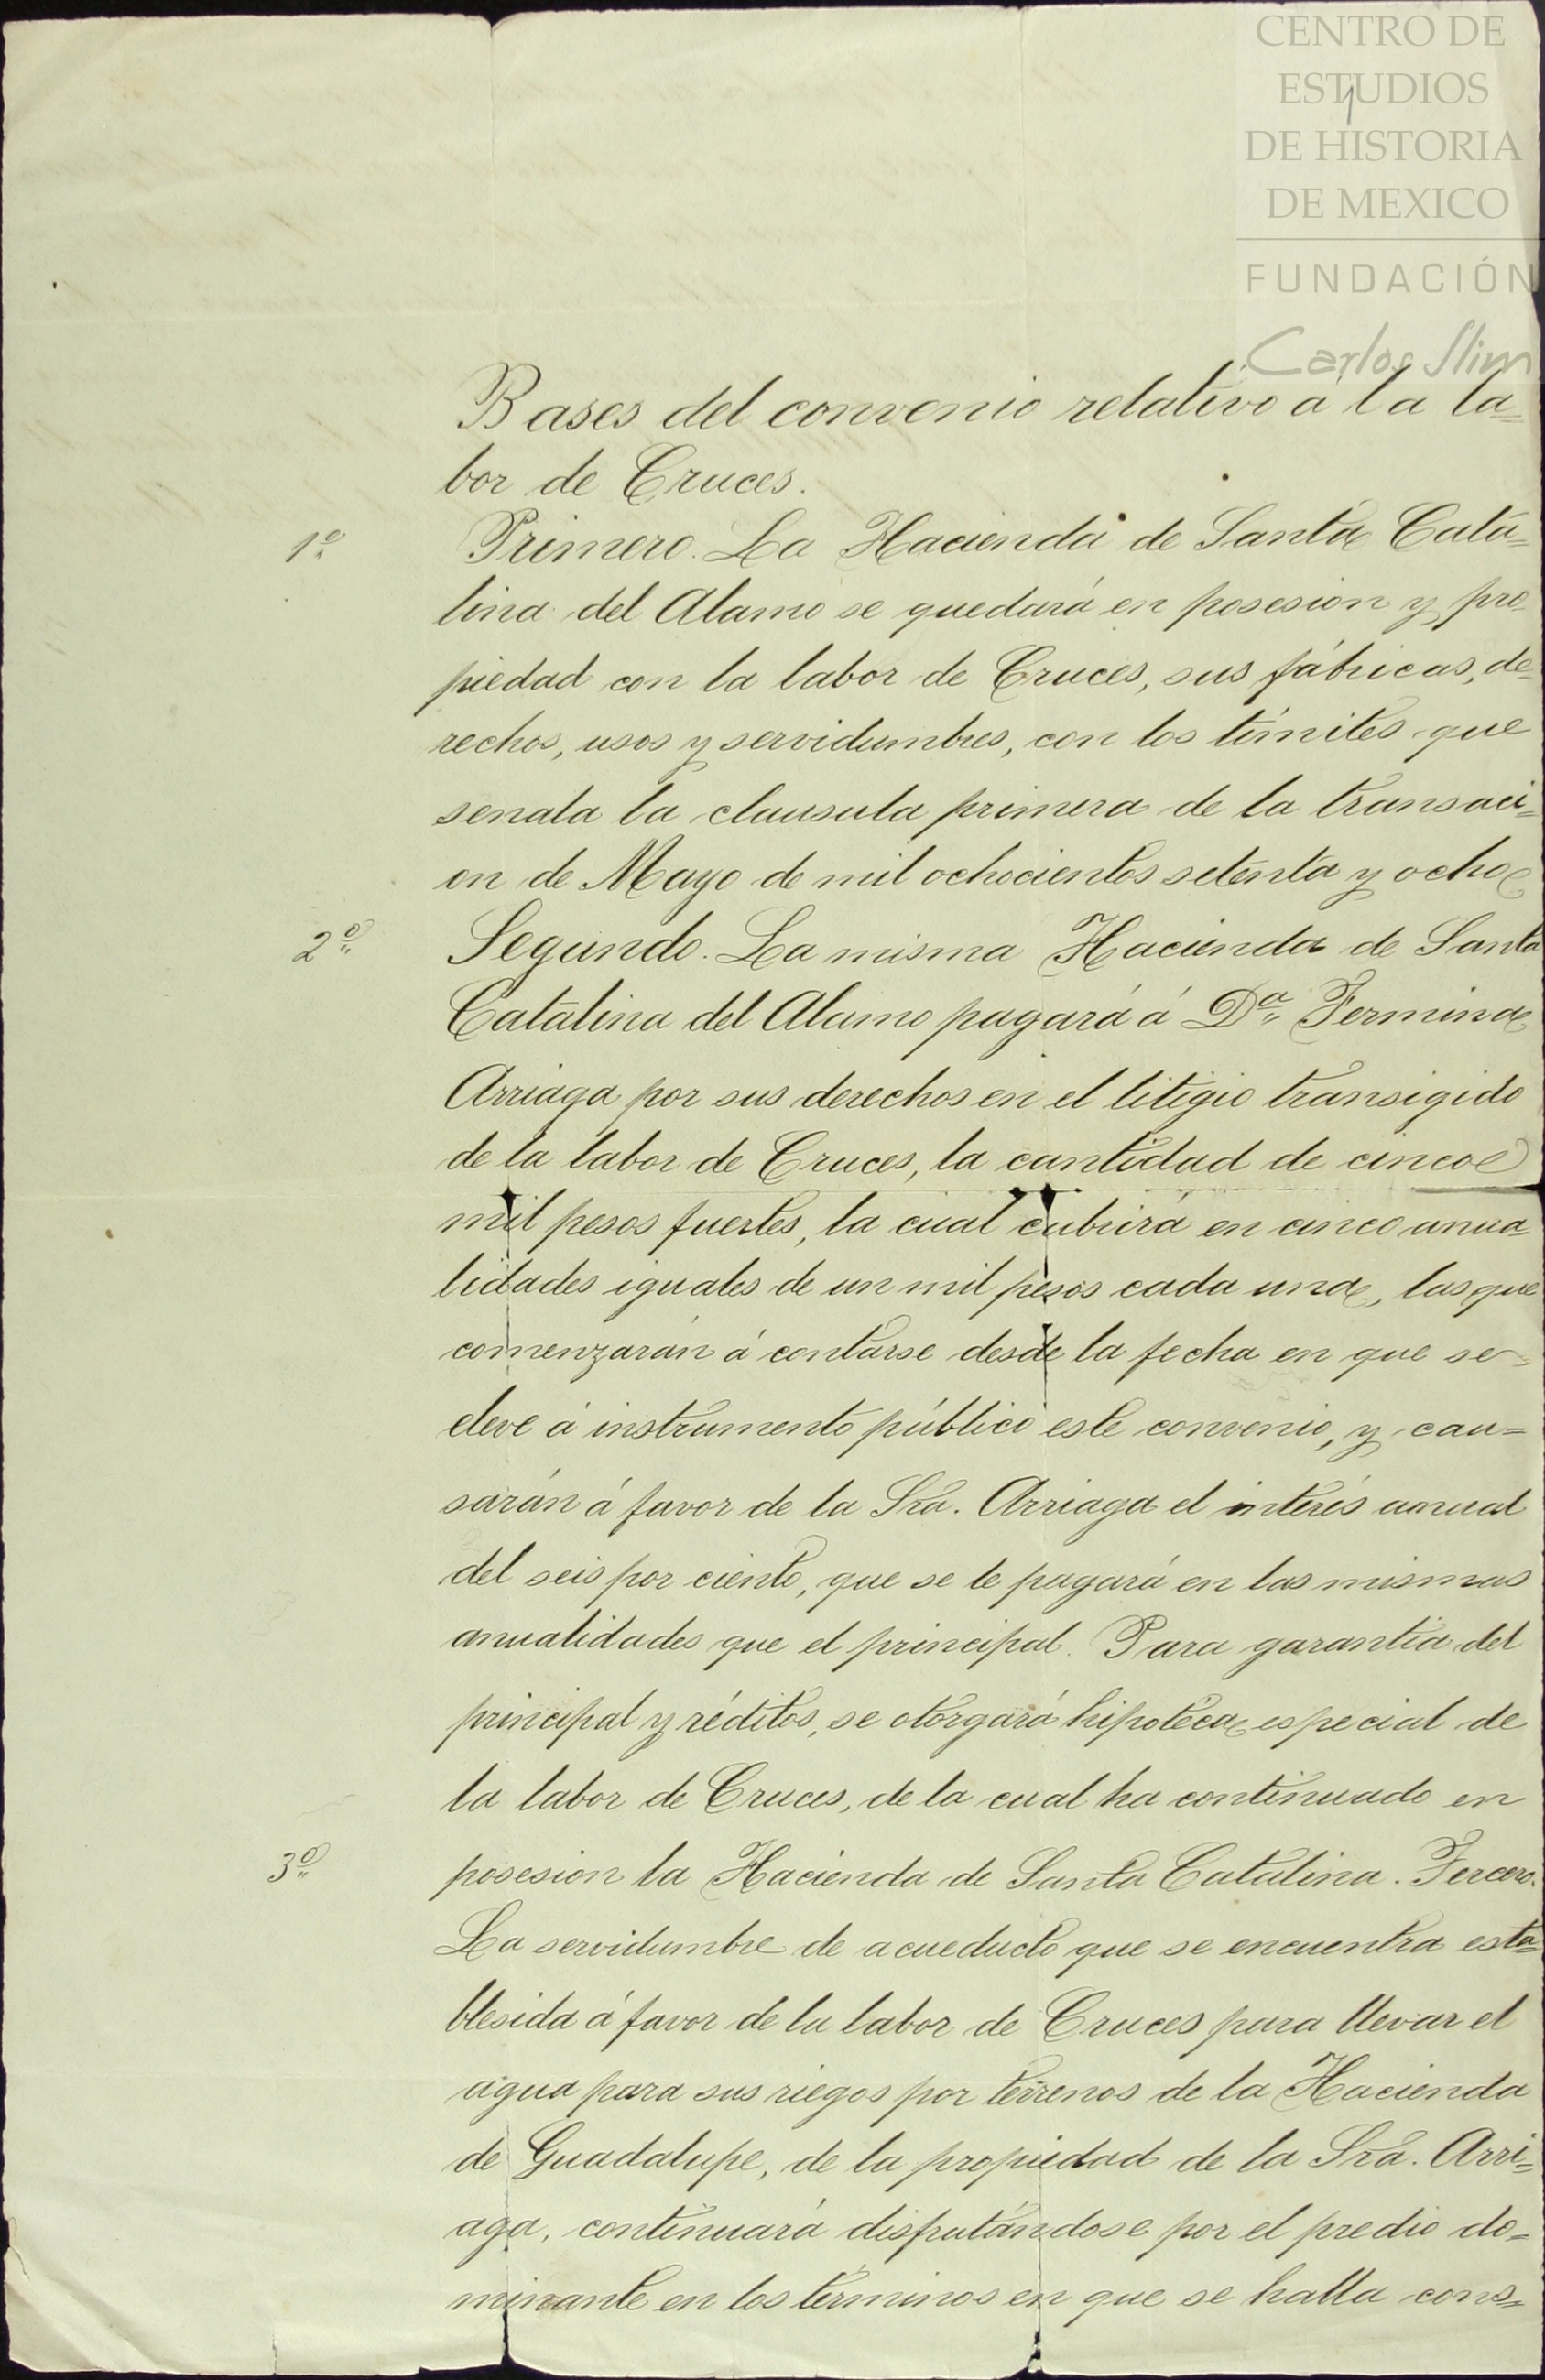 CENTRO DE
ESTUDIOS
DE HISTORIA
DE MEXICO
FUNDACIÓN
Carlos Slim
1
Bases del convenio relativo á la la=
bor de Cruces.
1º Primero. La Hacienda de Santa Cata=
lina del Alamo se quedará en posesion y pro-
piedad con la labor de Cruces, sus fábricas, de-
rechos, usos y servidumbres, con los límites que
senala la clausula primera de la transaci=
on de Mayo de mil ochocientos setenta y ocho
2º Segundo. La misma Hacienda de Santa
Catalina del Alamo pagará á Dª Fermina
Arriaga por sus derechos en el litigio transigido
de la labor de Cruces, la cantidad de cinco
mil pesos fuertes, la cual cubrirá en cinco anua-
lidades iguales de un mil pesos cada una, las que
comenzarán á contarse desde la fecha en que se
eleve á instrumento público este convenio, y cau=
sarán á favor de la Sra. Arriaga el interés anual
del seis por ciento, que se le pagará en las mismas
anualidades que el principal. Para garantía del
principal y réditos, se otorgará hipoteca especial de
la labor de Cruces, de la cual ha continuado en
3º posesion la Hacienda de Santa Catalina. Tercero.
La servidumbre de acueducto que se encuentra esta=
blesida á favor de la labor de Cruces para llevar el
agua para sus riegos por terrenos de la Hacienda
de Guadalupe, de la propiedad de la Sra. Arri=
aga, continuará disfrutándose por el predio do=
minante en los términos en que se halla cons=